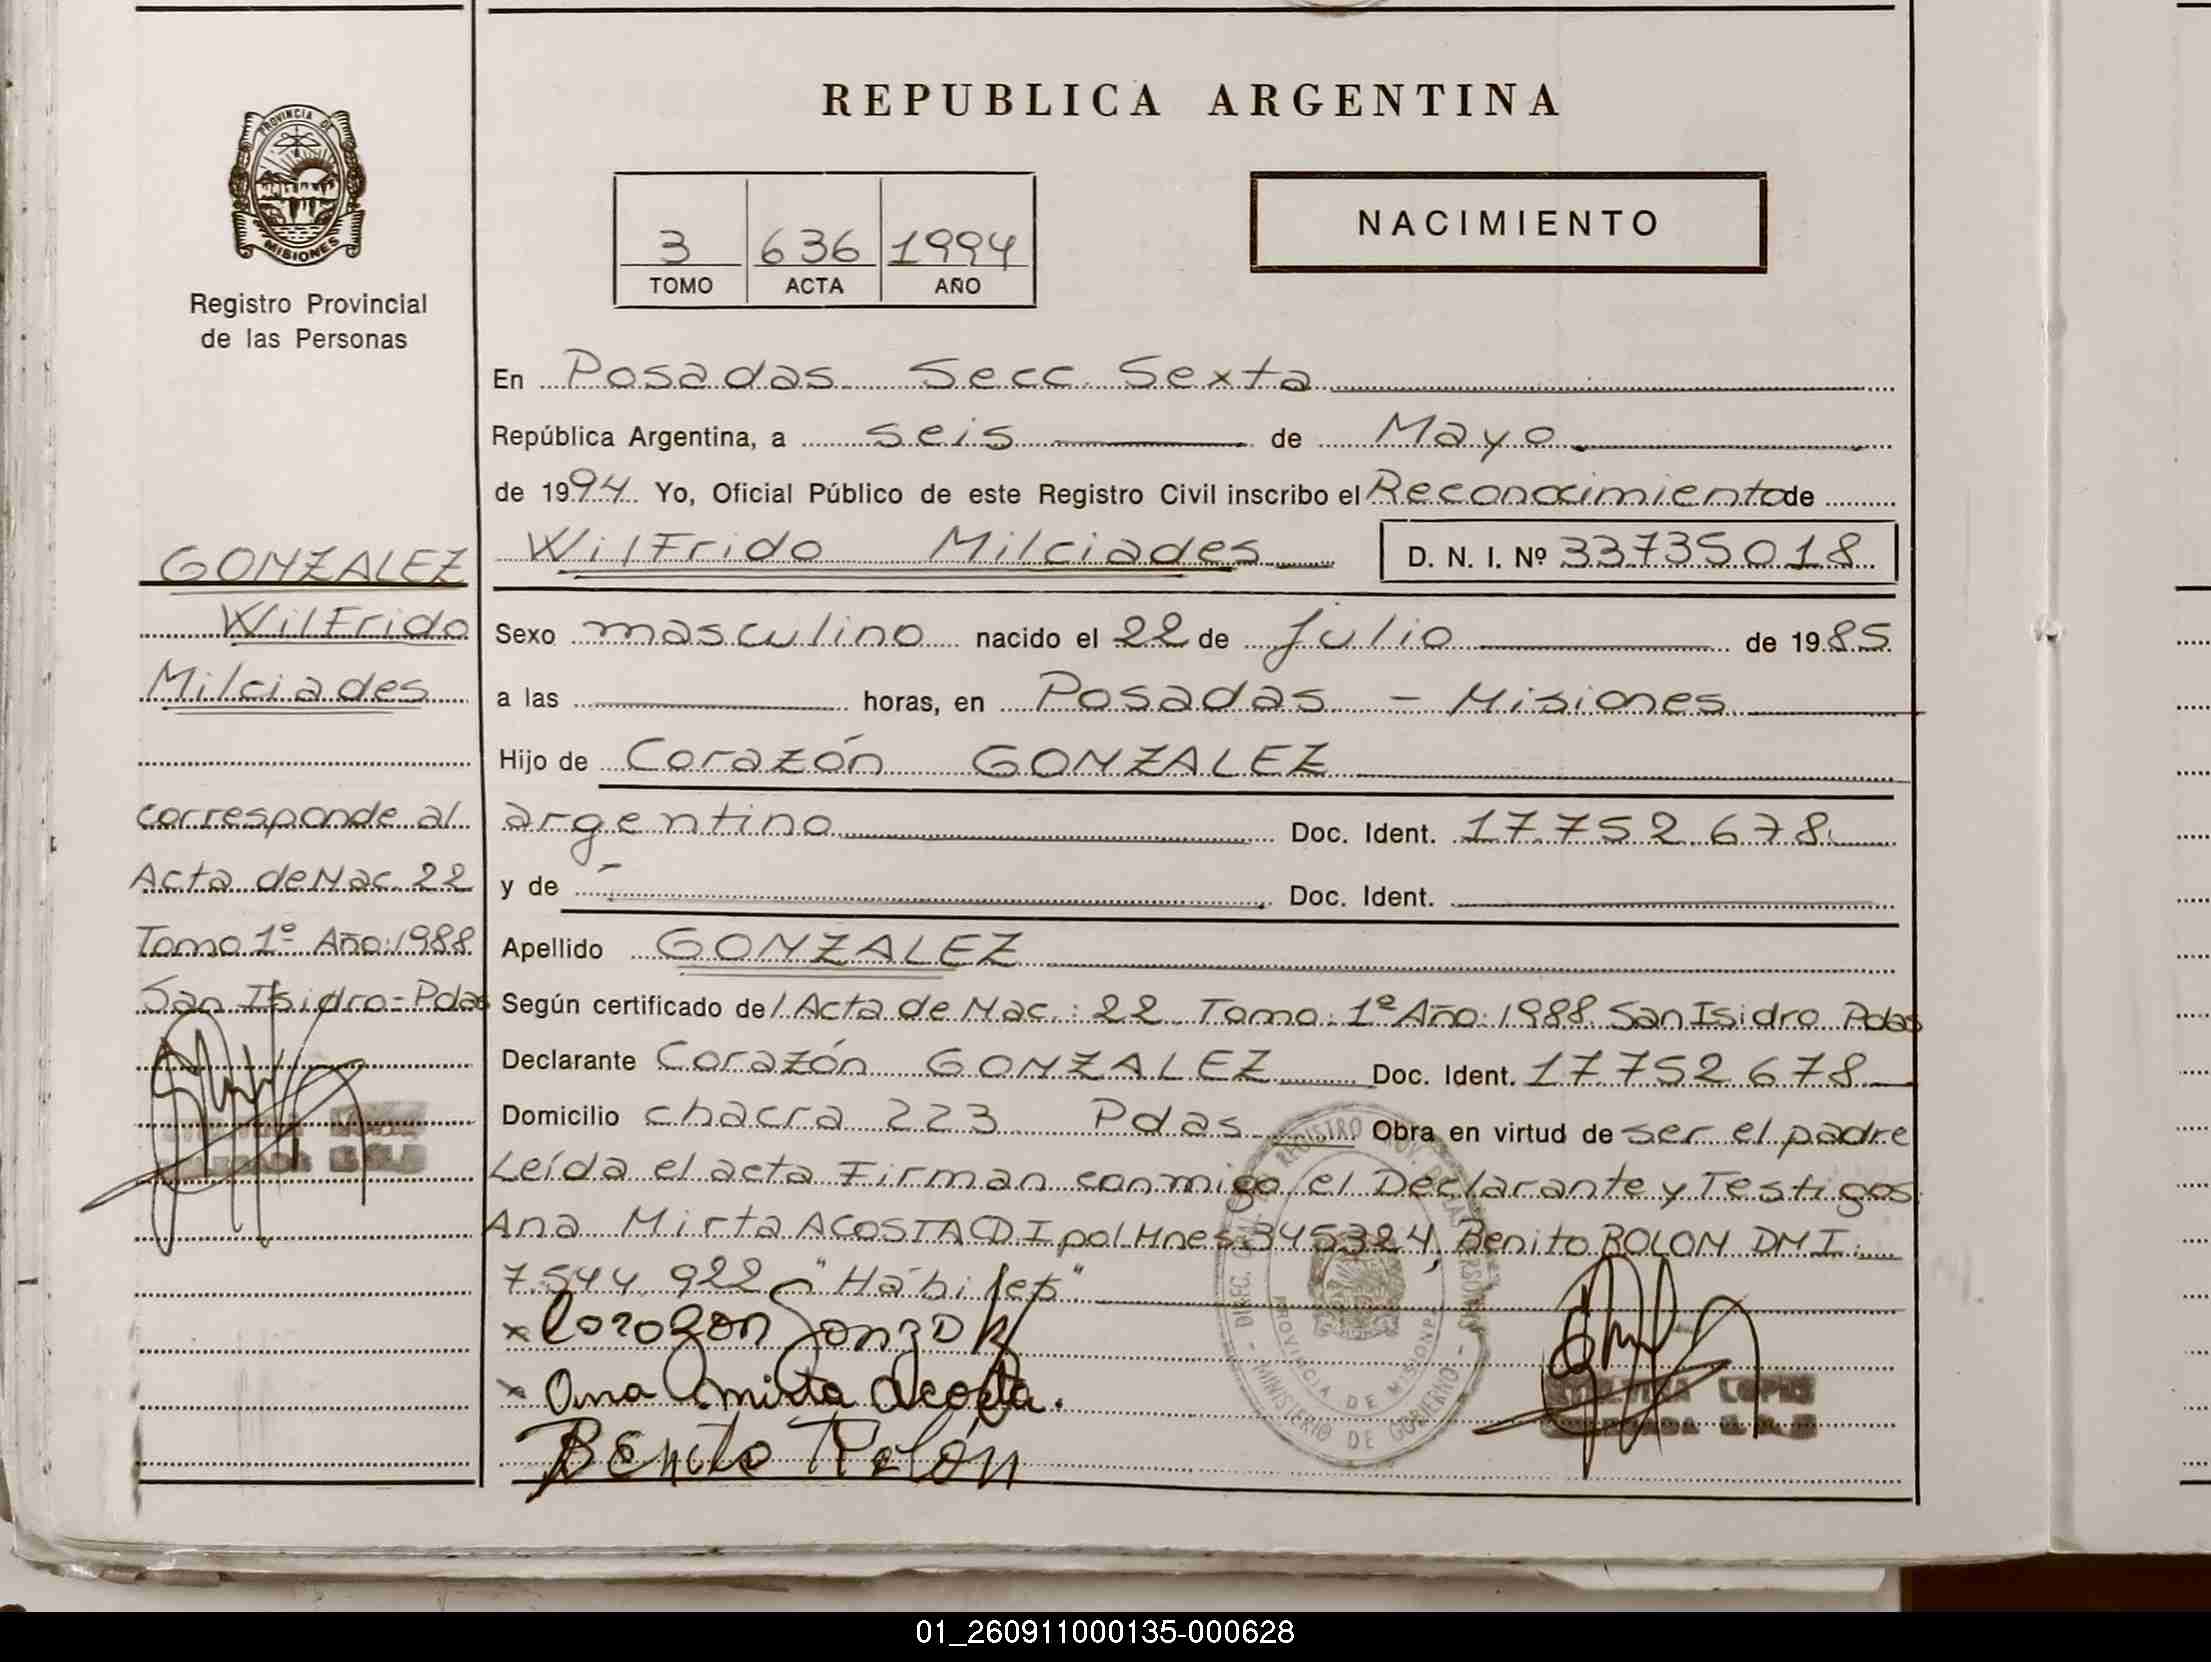 REPUBLICA ARGENTINA
PROVINCIA DE
MISIONES
Registro Provincial
de las Personas
3 636 1994
TOMO ACTA AÑO
NACIMIENTO
En Posadas Secc. Sexta
República Argentina, a seis de Mayo
de 1994 Yo, Oficial Público de este Registro Civil inscribo el Reconocimiento de
Wilfrido Milciades D. N. I. Nº 33735018
Sexo masculino nacido el 22 de Julio de 1985
a las horas, en Posadas - Misiones
Hijo de Corazón GONZALEZ
argentino Doc. Ident. 17.752.678
y de Doc. Ident.
Apellido GONZALEZ
Según certificado de / Acta de Nac.: 22 Tomo: 1º Año: 1988 San Isidro Pdas
Declarante Corazón GONZALEZ Doc. Ident. 17752678
Domicilio chacra 223 Pdas Obra en virtud de ser el padre
Leída el acta Firman conmigo el Declarante y Testigos
Ana Mirta ACOSTA CDI pol Mnes 345324, Benito ROLON DNI
7.544.922 "Hábiles"
Corazon Gonzalez
Ana mirta Acosta.
Benito Rolón
GONZALEZ
Wilfrido
Milciades
corresponde al
Acta de Nac. 22
Tomo 1º Año: 1988
San Isidro - Pdas
PROVINCIA DE MISIONES
MINISTERIO DE GOBIERNO
01_260911000135-000628